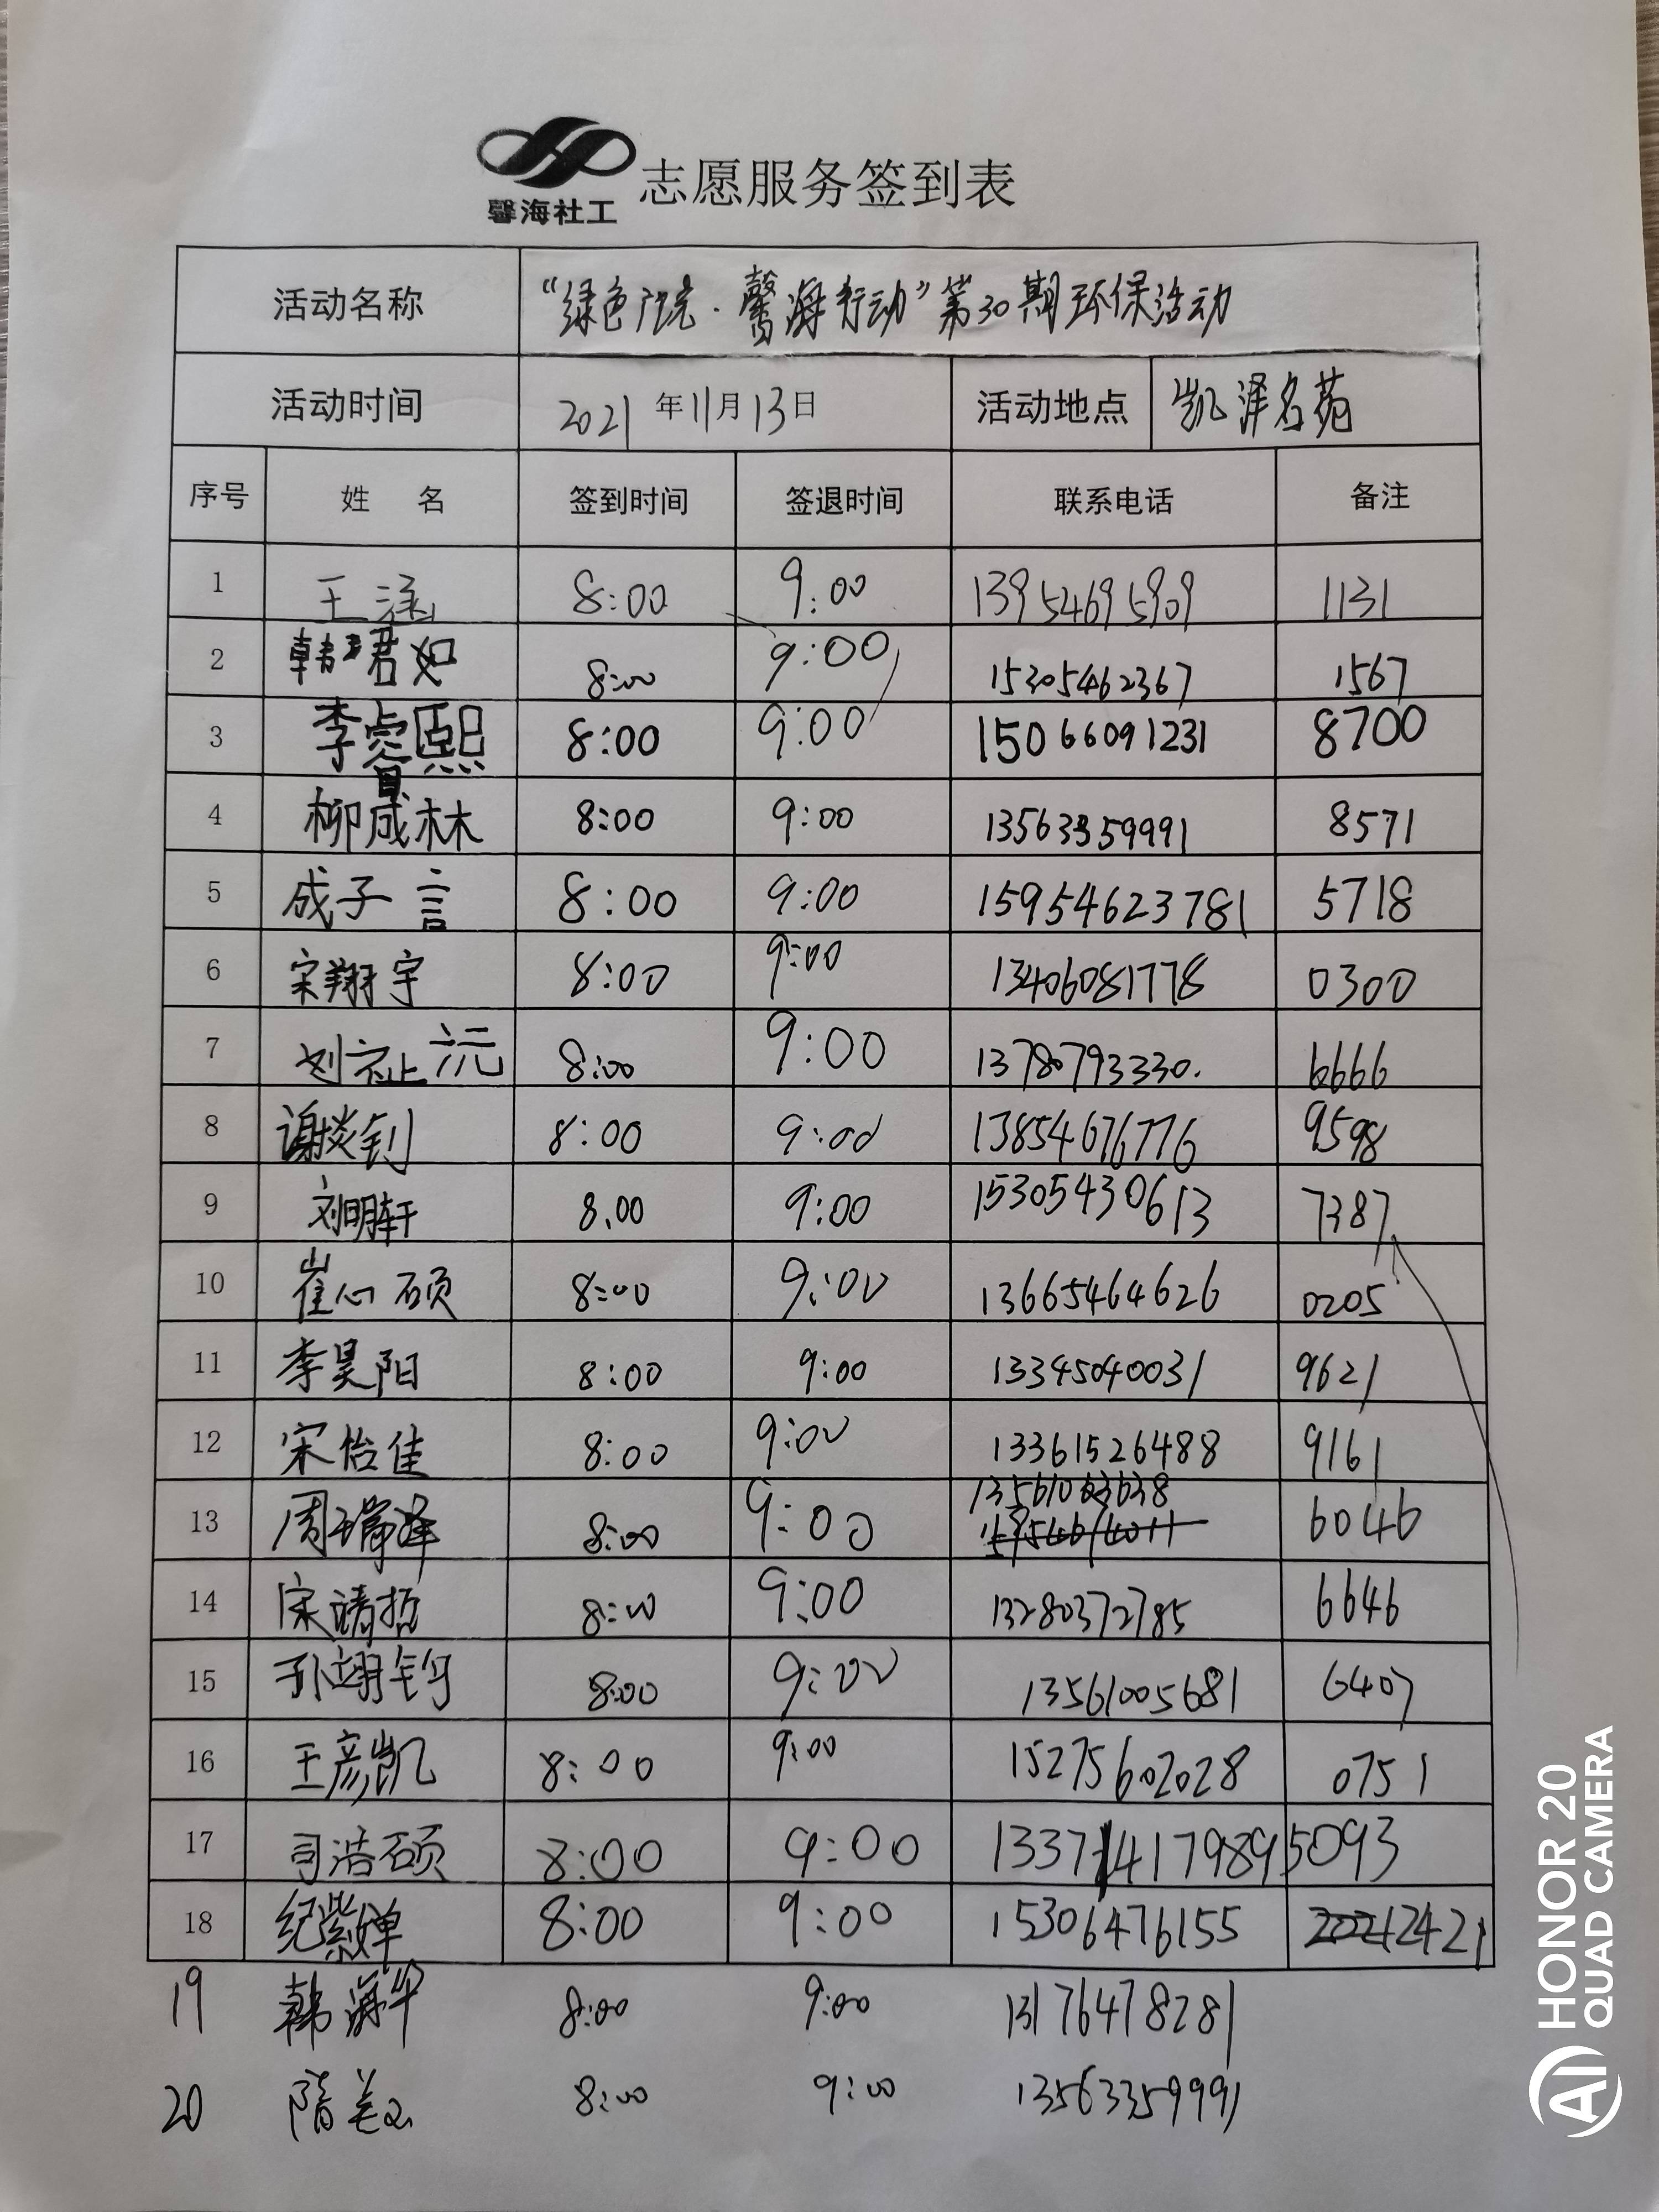 馨海社工
志愿服务签到表
活动名称 “绿色广饶·馨海行动”第30期环保活动
活动时间 2021年11月13日 活动地点 凯泽名苑
序号 姓 名 签到时间 签退时间 联系电话 备注
1 王涵 8:00 9:00 13954695909 1131
2 韩君如 8:00 9:00 15305462367 1567
3 李睿熙 8:00 9:00 15066091231 8700
4 柳成林 8:00 9:00 13563359991 8571
5 成子言 8:00 9:00 15954623781 5718
6 宋翔宇 8:00 9:00 13406081778 0300
7 刘祉沅 8:00 9:00 13780793330. 6666
8 谢炎钊 8:00 9:00 13854676776 9598
9 刘明轩 8.00 9:00 15305430613 7387
10 崔心硕 8:00 9:00 13665464626 0205
11 李昊阳 8:00 9:00 13345040031 9621
12 宋怡佳 8:00 9:00 13361526488 9161
13 周瑞泽 8:00 9:00 13561063638 6046
14 宋靖哲 8:00 9:00 13280372785 6646
15 孙翊钧 8:00 9:00 13561005681 6407
16 王彦凯 8:00 9:00 15275602028 0751
17 司浩硕 8:00 9:00 13371417989 5093
18 纪紫婵 8:00 9:00 15306476155 2421
19 韩海华 8:00 9:00 13176478281
20 隋美 8:00 9:00 13563359991
AI HONOR 20
QUAD CAMERA